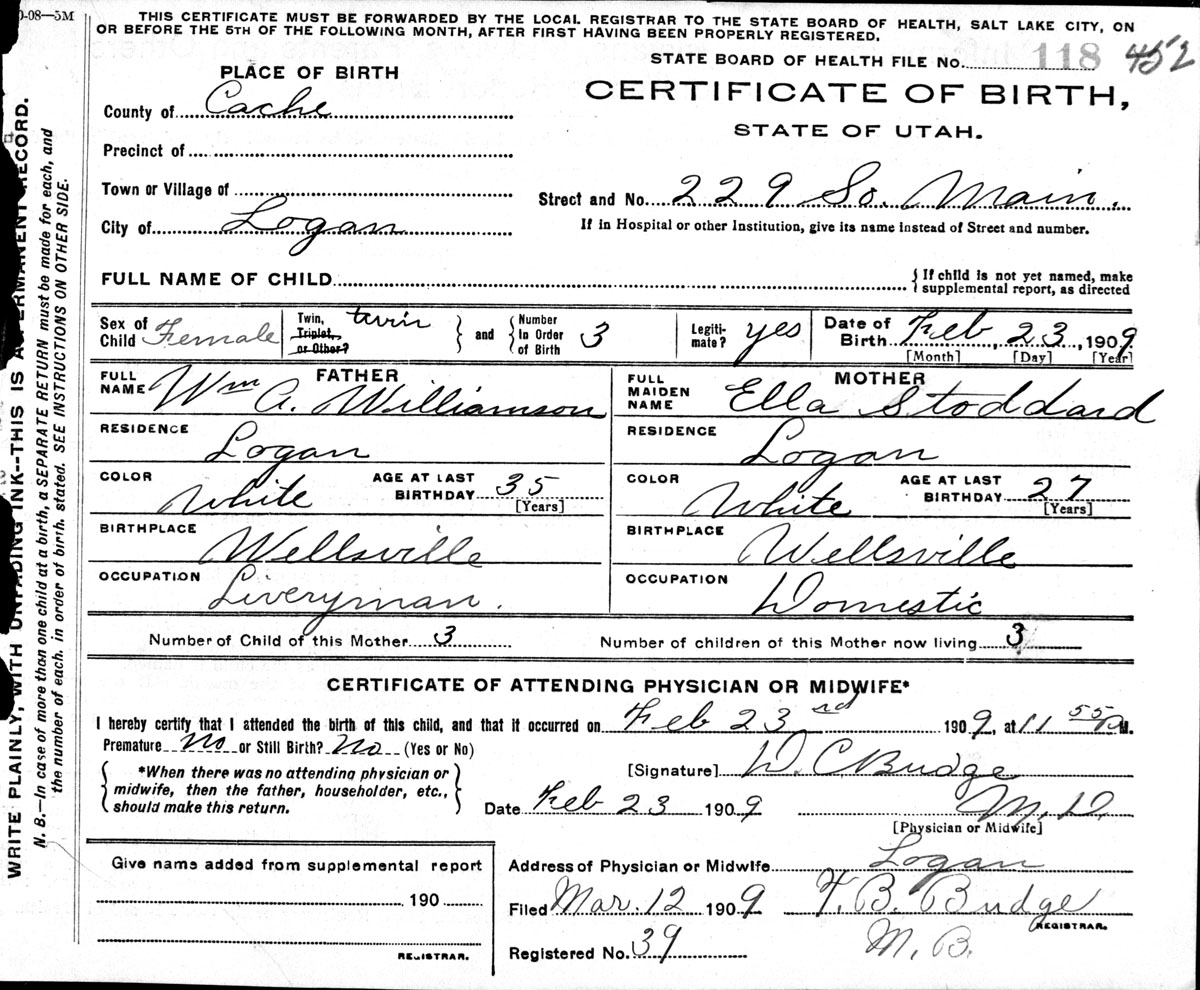 0-08—5M
THIS CERTIFICATE MUST BE FORWARDED BY THE LOCAL REGISTRAR TO THE STATE BOARD OF HEALTH, SALT LAKE CITY, ON
OR BEFORE THE 5TH OF THE FOLLOWING MONTH, AFTER FIRST HAVING BEEN PROPERLY REGISTERED.
STATE BOARD OF HEALTH FILE No. 118 452
PLACE OF BIRTH
CERTIFICATE OF BIRTH,
STATE OF UTAH.
County of Cache
Precinct of
Town or Village of
Street and No. 229 So. Main.
City of Logan
If in Hospital or other Institution, give its name instead of Street and number.
FULL NAME OF CHILD
{ If child is not yet named, make
supplemental report, as directed
Sex of Child Female
Twin, Triplet, or Other? twin
and
Number In Order of Birth 3
Legiti-mate? yes
Date of Birth Feb, 23, 1909
[Month] [Day] [Year]
FATHER
FULL NAME Wm A. Williamson
RESIDENCE
Logan
COLOR White
AGE AT LAST BIRTHDAY 35
[Years]
BIRTHPLACE
Wellsville
OCCUPATION
Liveryman.
MOTHER
FULL MAIDEN NAME Ella Stoddard
RESIDENCE
Logan
COLOR White
AGE AT LAST BIRTHDAY 27
[Years]
BIRTHPLACE
Wellsville
OCCUPATION
Domestic
Number of Child of this Mother 3
Number of children of this Mother now living 3
CERTIFICATE OF ATTENDING PHYSICIAN OR MIDWIFE*
I hereby certify that I attended the birth of this child, and that it occurred on Feb 23rd 1909, at 11 55 M.
Premature No or Still Birth? No (Yes or No)
*When there was no attending physician or
midwife, then the father, householder, etc.,
should make this return.
[Signature] W. C Budge
Date Feb 23 1909
M.D.
[Physician or Midwife]
Give name added from supplemental report
190
REGISTRAR.
Address of Physician or Midwife Logan
Filed Mar. 12 1909 T. B. Budge
REGISTRAR.
Registered No. 39
M. B.
WRITE PLAINLY, WITH UNFADING INK--THIS IS A PERMANENT RECORD.
N. B.—In case of more than one child at a birth, a SEPARATE RETURN must be made for each, and
the number of each, in order of birth, stated. SEE INSTRUCTIONS ON OTHER SIDE.